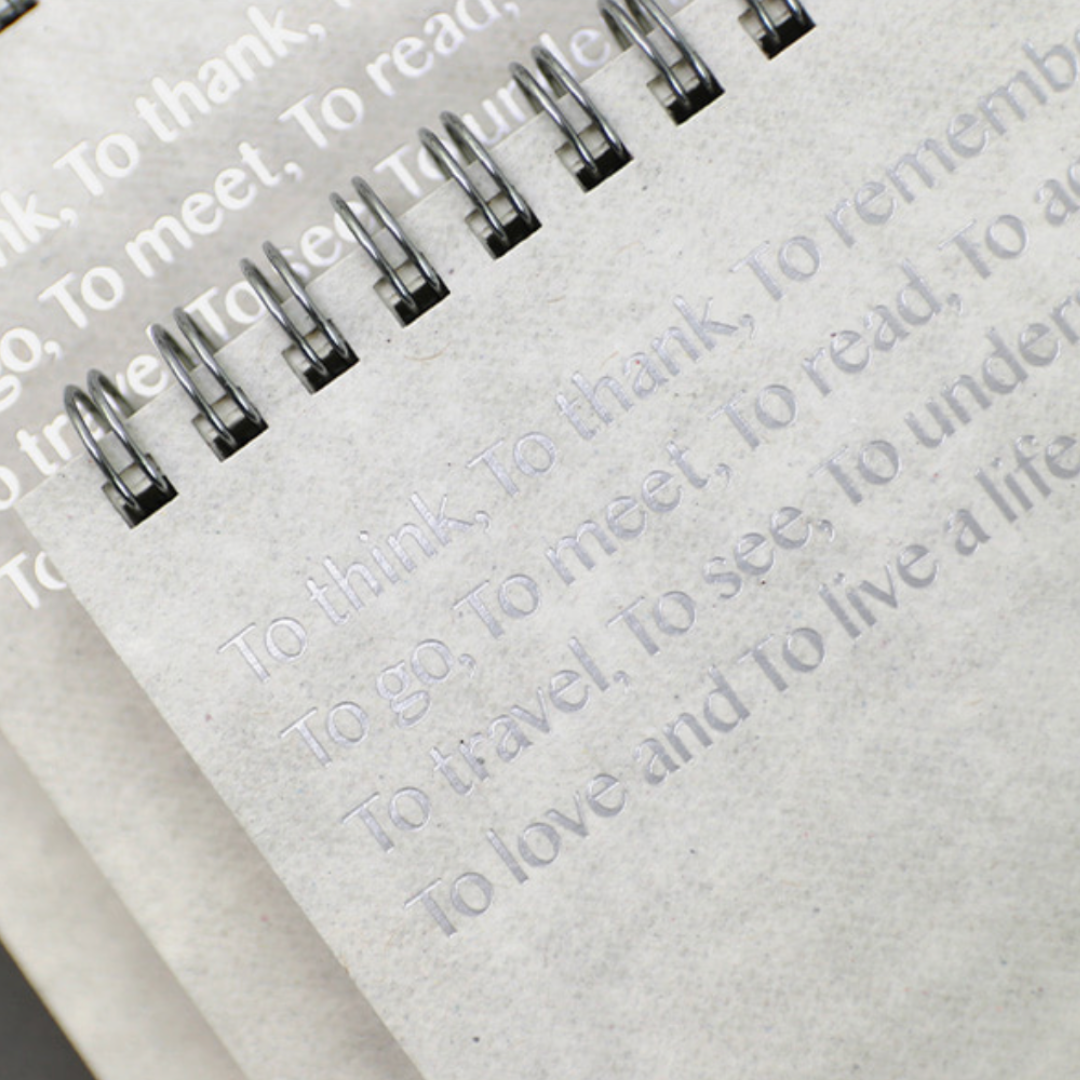 To think, To thank, To remembe
To go, To meet, To read, To ac
To travel, To see, To unders
To love and To live a life
nk, To thank,
go, To meet, To read,
To see, To un
To